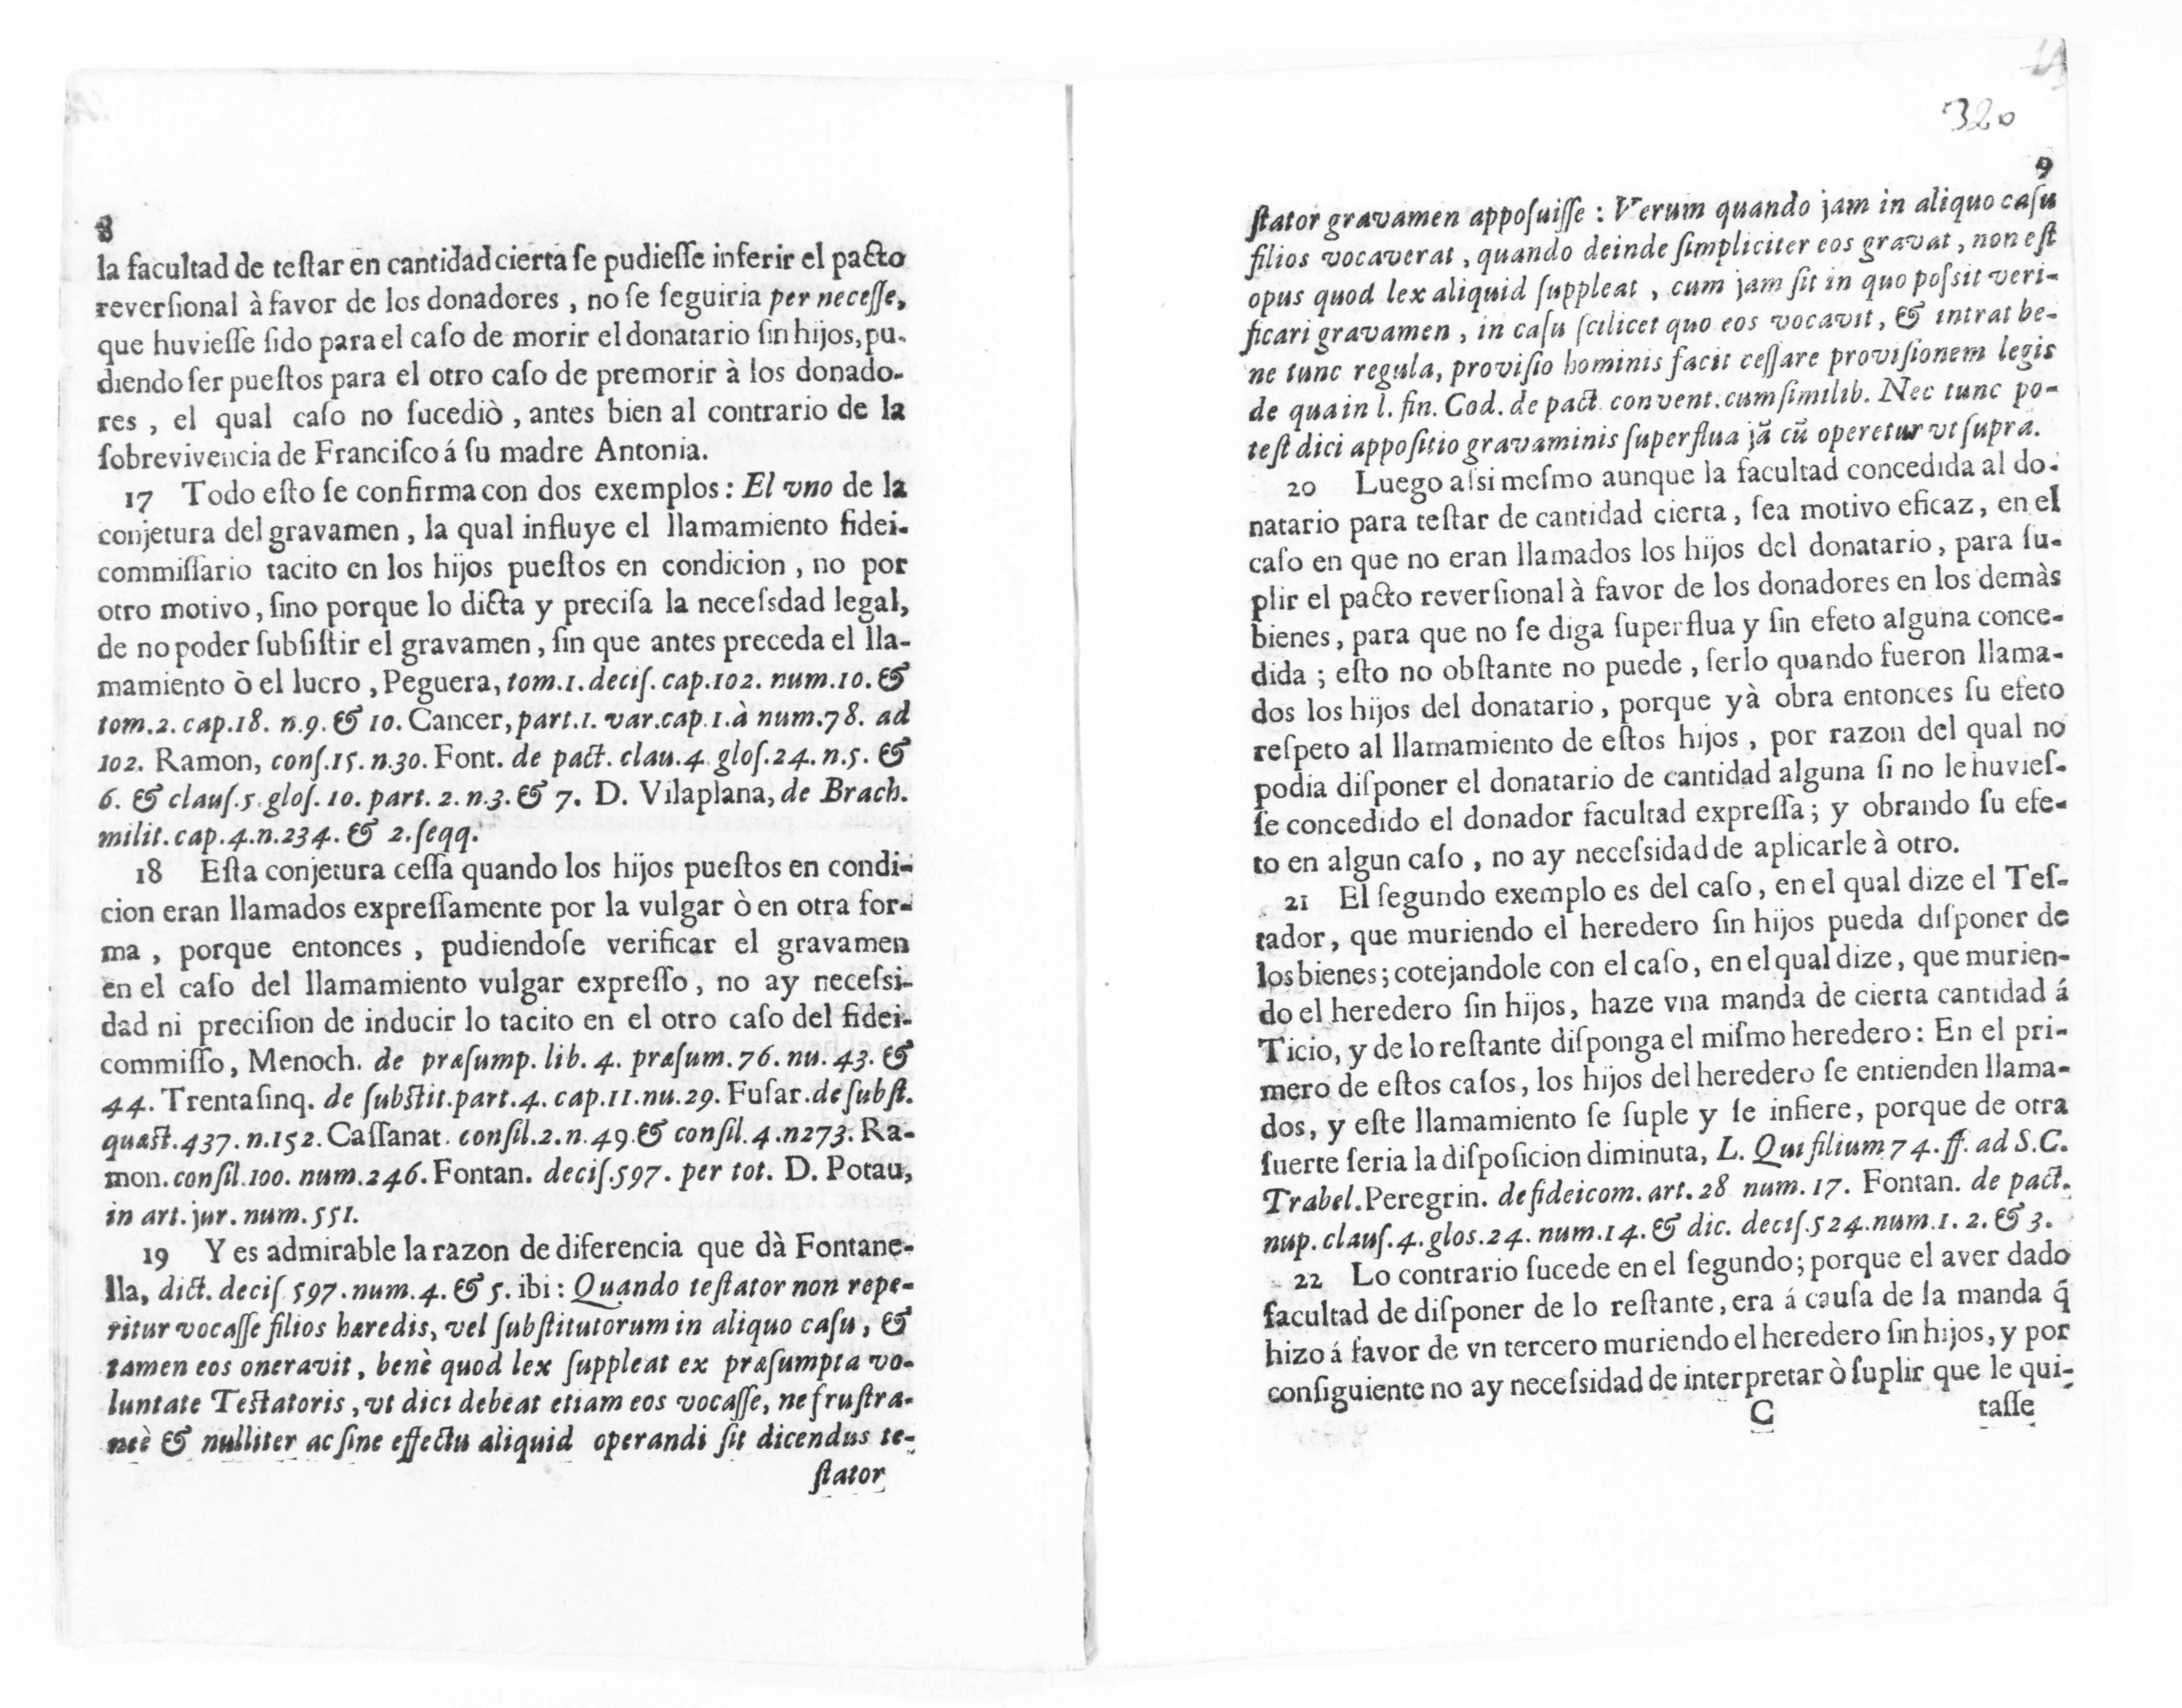 8
la facultad de teſtar en cantidad cierta ſe pudieſſe inferir el pacto
reverſional à favor de los donadores , no ſe ſeguiria per neceſſe,
que huvieſſe ſido para el caſo de morir el donatario ſin hijos, pu-
diendo ſer pueſtos para el otro caſo de premorir à los donado-
res , el qual caſo no ſucediò , antes bien al contrario de la
ſobrevivencia de Franciſco á ſu madre Antonia.
17 Todo eſto ſe confirma con dos exemplos : El vno de la
conjetura del gravamen , la qual influye el llamamiento fidei-
commiſſario tacito en los hijos pueſtos en condicion , no por
otro motivo, ſino porque lo dicta y preciſa la neceſsdad legal,
de no poder ſubſiſtir el gravamen , ſin que antes preceda el lla-
mamiento ò el lucro , Peguera, tom.1.deciſ. cap.102. num.10. &
tom.2. cap.18. n.9. & 10. Cancer, part.1. var.cap.1.à num.78. ad
102. Ramon, conſ.15. n.30. Font. de pact. clau.4. gloſ.24. n.5. &
6. & clauſ.5.gloſ. 10. part. 2. n.3. & 7. D. Vilaplana, de Brach.
milit.cap.4.n.234. & 2.ſeqq.
18 Eſta conjetura ceſſa quando los hijos pueſtos en condi-
cion eran llamados expreſſamente por la vulgar ò en otra for-
ma , porque entonces , pudiendoſe verificar el gravamen
en el caſo del llamamiento vulgar expreſſo , no ay neceſsi-
dad ni preciſion de inducir lo tacito en el otro caſo del fidei-
commiſſo, Menoch. de præſump. lib. 4. præſum. 76. nu. 43. &
44. Trentaſinq. de ſubſtit.part.4. cap.11.nu.29. Fuſar.de ſubſt.
quæſt.437. n.152. Caſſanat. conſil.2.n.49.& conſil.4.n273. Ra-
mon. conſil.100. num.246. Fontan. deciſ.597. per tot. D. Potau,
in art. jur. num. 551.
19 Y es admirable la razon de diferencia que dà Fontane-
lla, dict. deciſ 597.num.4. & 5. ibi : Quando teſtator non repe-
ritur vocaſſe filios hæredis, vel ſubſtitutorum in aliquo caſu, &
tamen eos oneravit , benè quod lex ſuppleat ex præſumpta vo-
luntate Teſtatoris , vt dici debeat etiam eos vocaſſe, ne fruſtra-
neè & nulliter ac ſine effectu aliquid operandi ſit dicendus te-
ſtator
320
9
ſtator gravamen appoſuiſſe : Verum quando jam in aliquo caſu
filios vocaverat , quando deinde ſimpliciter eos gravat , non eſt
opus quod lex aliquid ſuppleat , cum jam ſit in quo poſsit veri-
ficari gravamen , in caſu ſcilicet quo eos vocavit, & intrat be-
ne tunc regula, proviſio hominis facit ceſſare proviſionem legis
de qua in l. fin. Cod. de pact. convent. cum ſimilib. Nec tunc po-
teſt dici appoſitio gravaminis ſuperflua jã cũ operetur vt ſupra.
20 Luego aſsi meſmo aunque la facultad concedida al do-
natario para teſtar de cantidad cierta , ſea motivo eficaz , en el
caſo en que no eran llamados los hijos del donatario , para ſu-
plir el pacto reverſional à favor de los donadores en los demàs
bienes , para que no ſe diga ſuperflua y ſin efeto alguna conce-
dida ; eſto no obſtante no puede , ſerlo quando fueron llama-
dos los hijos del donatario , porque yà obra entonces ſu efeto
reſpeto al llamamiento de eſtos hijos , por razon del qual no
podia diſponer el donatario de cantidad alguna ſi no le huvieſ-
ſe concedido el donador facultad expreſſa ; y obrando ſu efe-
to en algun caſo , no ay neceſsidad de aplicarle à otro.
21 El ſegundo exemplo es del caſo , en el qual dize el Teſ-
tador, que muriendo el heredero ſin hijos pueda diſponer de
los bienes ; cotejandole con el caſo, en el qual dize, que murien-
do el heredero ſin hijos, haze vna manda de cierta cantidad á
Ticio, y de lo reſtante diſponga el miſmo heredero : En el pri-
mero de eſtos caſos, los hijos del heredero ſe entienden llama-
dos, y eſte llamamiento ſe ſuple y ſe infiere, porque de otra
ſuerte ſeria la diſpoſicion diminuta, L. Qui filium 74. ff. ad S.C.
Trabel. Peregrin. de fideicom. art. 28 num. 17. Fontan. de pact.
nup. clauſ.4. glos.24. num.14. & dic. deciſ.524.num.1. 2. & 3.
22 Lo contrario ſucede en el ſegundo; porque el aver dado
facultad de diſponer de lo reſtante, era á cauſa de la manda q̃
hizo á favor de vn tercero muriendo el heredero ſin hijos, y por
conſiguiente no ay neceſsidad de interpretar ò ſuplir que le qui-
C taſſe